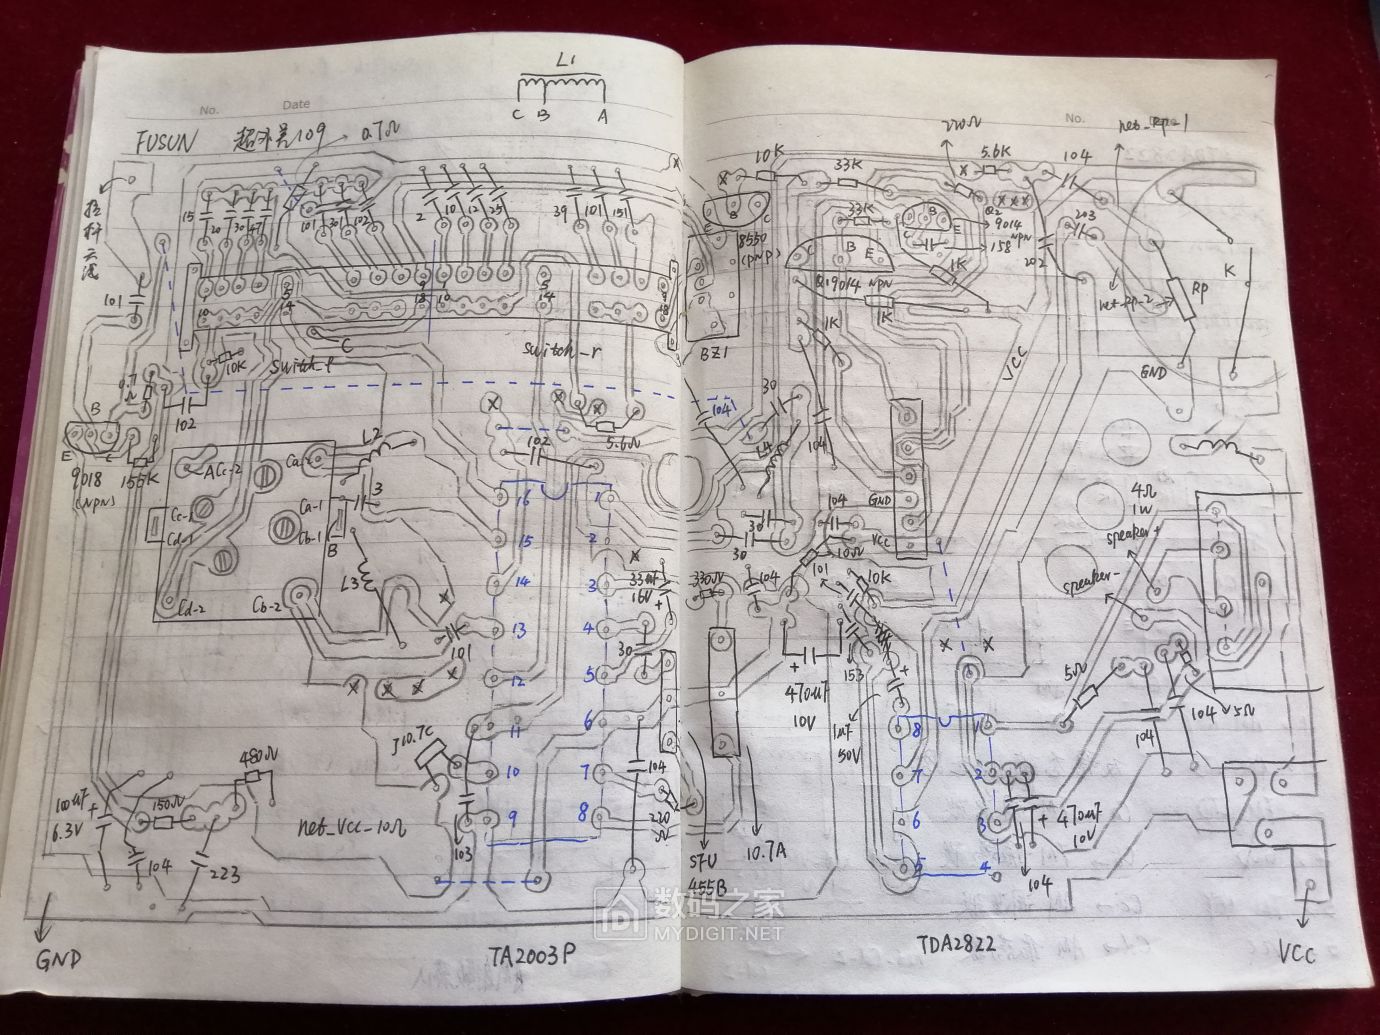 L1
C B A
No. Date
FUSUN 超外差109 0.7Ω
No.
net_rp-1
220Ω
5.6K
104
10K
33K
15
20
30
47
101
30
102
2
10
12
25
39
101
151
B
C
E
33K
B
C
E
Q2
9014
NPN
158
203
202
8550
(PNP)
B
E
1K
Q1 9014 NPN
K
Rp
net-rp-2
101
1
5
9
10
14
18
1
5
9
10
14
18
C
1K
1K
BZ1
VCC
GND
10K
switch-l
switch-r
0.7
Ω
102
B
E
C
9018
(NPN)
155K
102
5.6Ω
104
30
L4
104
L2
Ac-2
Ca-2
3
Cc-1
Cd-1
Ca-1
Cb-1
B
L3
Cd-2
Cb-2
16
15
14
13
12
11
10
9
1
2
3
4
5
6
7
8
30
30
104
GND
VCC
10Ω
4Ω
1W
speaker+
speaker-
33uf
16V
330Ω
104
101
10K
101
30
153
470uf
10V
1uf
50V
5Ω
104
5Ω
104
J10.7C
480Ω
100uf
6.3V
150Ω
104
223
net_VCC_10Ω
103
104
220
Ω
SFU
455B
10.7A
8
7
6
5
1
2
3
4
470uf
10V
104
数码之家
MYDIGIT.NET
GND
TA2003P
TDA2822
VCC